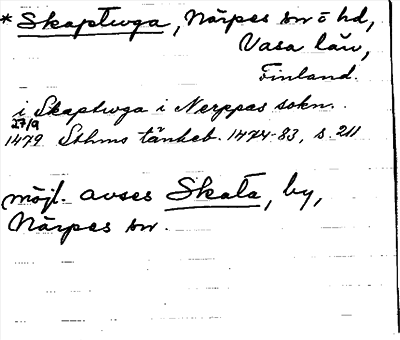 * Skaptwga, Närpes sn o hd,
Vasa län,
Finland.
i Skaptwga i Nerppes sokn.
27/9
1479 Sthms tänkeb. 1474-83, s. 211
möjl. avses Skata, by,
Närpes sn.